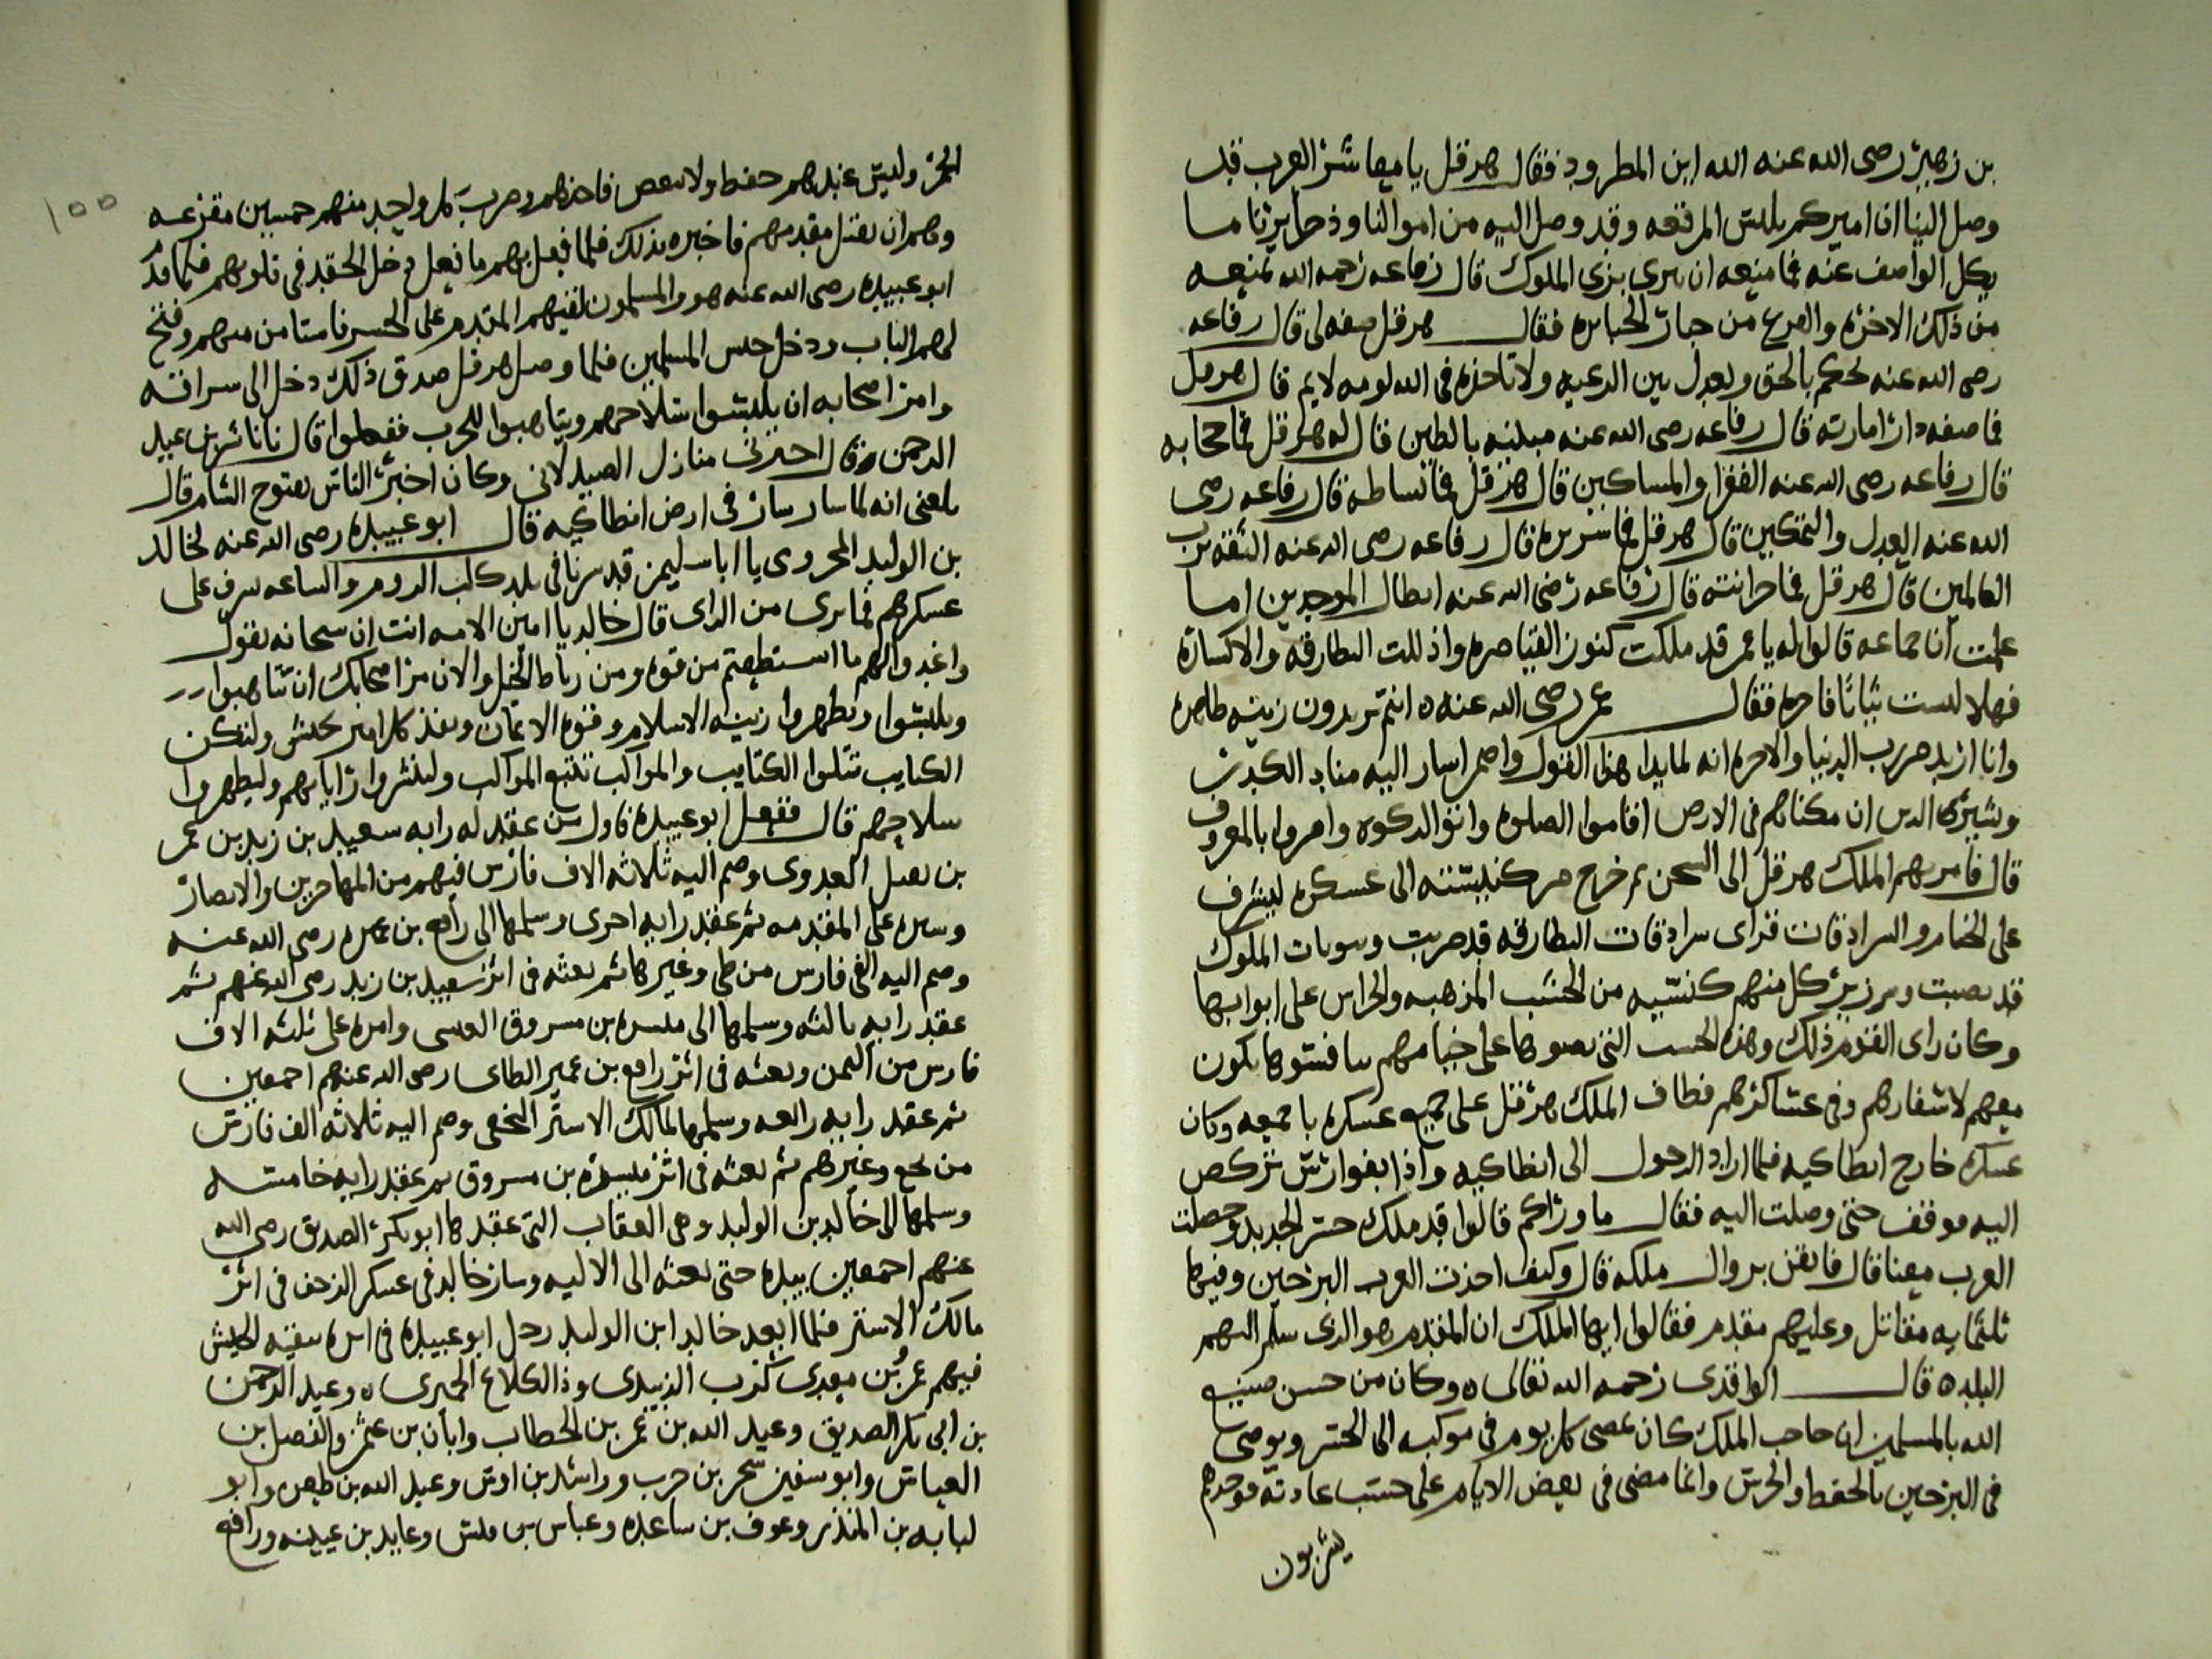 بن زهير رضى الله عنه الله ابن المطرود فقال هرقل يا معاشر العرب قد
وصل الينا ان اميركم يلبس المرقعه وقد وصل اليه من اموالنا وذخايرنا ما
يكل الواصف عنه فما منعه ان يرى بزى الملوك قال رفاعه رحمه الله يمنعه
من ذلك الاخره والفزع من جبار الجبابره فقال هرقل صفه لى قال رفاعه
رضى الله عنه يحكم بالحق ويعدل بين الرعيه ولا تاخذه فى الله لومه لايم قال هرقل
فما صفه دار امارته قال رفاعه رضى الله عنه مبنيه بالطين قال له هرقل فما حجابه
قال رفاعه رضى الله عنه الفقرا والمساكين قال هرقل فما بساطه قال رفاعه رضى
الله عنه العدل والتمكين قال هرقل فما سريره قال رفاعه رضى الله عنه الثقه برب
العالمين قال هرقل فما خزانته قال رفاعه رضى الله عنه ابطال الموحدين اما
علمت ان جماعه قالوا له يا عمر قد ملكت كنوز القياصره واذللت البطارقه والاكاسره
فهلا لبست ثيابا فاخره فقال عمر رضى الله عنه ه انتم تريدون زينه ظاهره
وانا اريد رب الدنيا والاخره انه لما بدا هذا القول واضمر اسار اليه مناد الكدرن
وبشيرى الذين ان مكناهم فى الارض اقاموا الصلوه واتوا الزكوه وامروا بالمعروف
قال فامر بهم الملك هرقل الى السجن ثم خرج من كنيسته الى عسكره ليشرف
على الخيام والسرادقات فراى سرادقات البطارقه قد ضربت وبيوتات الملوك
قد نصبت وبرز كل منهم كنيسه من الخشب المذهبه والحراس على ابوابها
وكان راى القوم ذلك وهذه الخشب التى نصبوها على خيامهم يكون
معهم لاسفارهم وفى عساكرهم فطاف الملك هرقل على جميع عسكره باجمعه وكان
عسكره خارج انطاكيه فلما اراد الدخول الى انطاكيه واذا بفوارس تركض
اليه موقف حتى وصلت اليه فقال ما وراكم قالوا قد ملك جسر الحديد وحصلت
العرب معنا قال فايقن بزوال ملكه قال وكيف اخذت العرب البرجين وفيها
ثلثمايه مقاتل وعليهم مقدم فقالوا ايها الملك ان المقدم هو الذى سلم اليهم
البلد ه قال الواقدى رحمه الله تعالى ه وكان من حسن صنيع
الله بالمسلمين ان حاجب الملك كان يمضى كل يوم فى موكبه الى الجسر ويوصى
فى البرجين بالحفظ والحرس وانما مضى فى بعض الايام على حسب عادته فوجدهم
يشربون
١٥٥
الخمر وليس عندهم حفظ ولا فاخذهم وضرب كل واحد منهم خمسين مقرعه
وهم ان يقتل مقدمهم فاخبره بذلك فلما فعل بهم ما فعل دخل الحقد فى قلوبهم فلما قدم
ابو عبيده رضى الله عنه هو والمسلمون لقيهم المقدم على الجسر فاستامن منهم وفتح
لهم الباب ودخل جيش المسلمين فلما وصل هرقل صدق ذلك دخل الى سرادقه
وامر اصحابه ان يلبسوا سلاحهم ويتاهبوا للحرب ففعلوا قال ناناشر بن عبد
الرحمن قال اخبرنى منازل الصيدلانى وكان اخبر الناس بفتوح الشام قال
بلغنى انه لما سار سار فى ارض انطاكيه قال ابو عبيده رضى الله عنه لخالد
بن الوليد المخزومى يا ابا سليمن قد سرنا فى بلد كلب الروم والساعه نشرف على
عسكرهم فما ترى من الراى قال خالد يا امين الامه انت ان سبحانه يقول
واعدوا لهم ما استطعتم من قوه ومن رباط الخيل والان مر اصحابك ان يتاهبوا
ويلبسوا ويظهروا زينه الاسلام وقوه الايمان ونفذ كل امير بجيش ولتكن
الكتايب تتلوا الكتايب والمواكب تتبع المواكب ولينشروا راياتهم وليظهروا
سلاحهم قال ففعل ابو عبيده فاول من عقد له رايه سعيد بن زيد بن عمر
بن نفيل العدوى وضم اليه ثلاثه الاف فارس فيهم من المهاجرين والانصار
وسيره على المقدمه ثم عقد رايه اخرى وسلمها الى رافع بن عميره رضى الله عنه
وضم اليه الفى فارس من طى وغيرها ثم بعثه فى اثر سعيد بن زيد رضى الله عنهم ثم
عقد رايه ثالثه وسلمها الى ميسره بن مسروق العبسى وامره على ثلثه الاف
فارس من اليمن وبعثه فى اثر رافع بن عمير الطاى رضى الله عنهم اجمعين
ثم عقد رايه رابعه وسلمها لمالك الاشتر النخعى وضم اليه ثلاثه الف فارس
من نخع وغيرهم ثم بعثه فى اثر ميسره بن مسروق ثم عقد رايه خامسه
وسلمها الى خالد بن الوليد وهى العقاب التى عقدها ابو بكر الصديق رضى الله
عنهم اجمعين بيده حتى بعثه الى الابله وسار خالد فى عسكر الزحف فى اثر
مالك الاشتر فلما ابعد خالد ابن الوليد رحل ابو عبيده فى اثره بقيه الجيش
فيهم عمر بن معدى كرب الزبيدى وذا الكلاع الحميرى ه وعبد الرحمن
بن ابى بكر الصديق وعبد الله بن عمر بن الخطاب وابان بن عثمن والفضل بن
العباس وابو سفين صخر بن حرب وراشد بن اوس وعبد الله بن طهره وابو
لبابه بن المنذر وعوف بن ساعده وعباس بن قيس وعابد بن عيينه ورافع